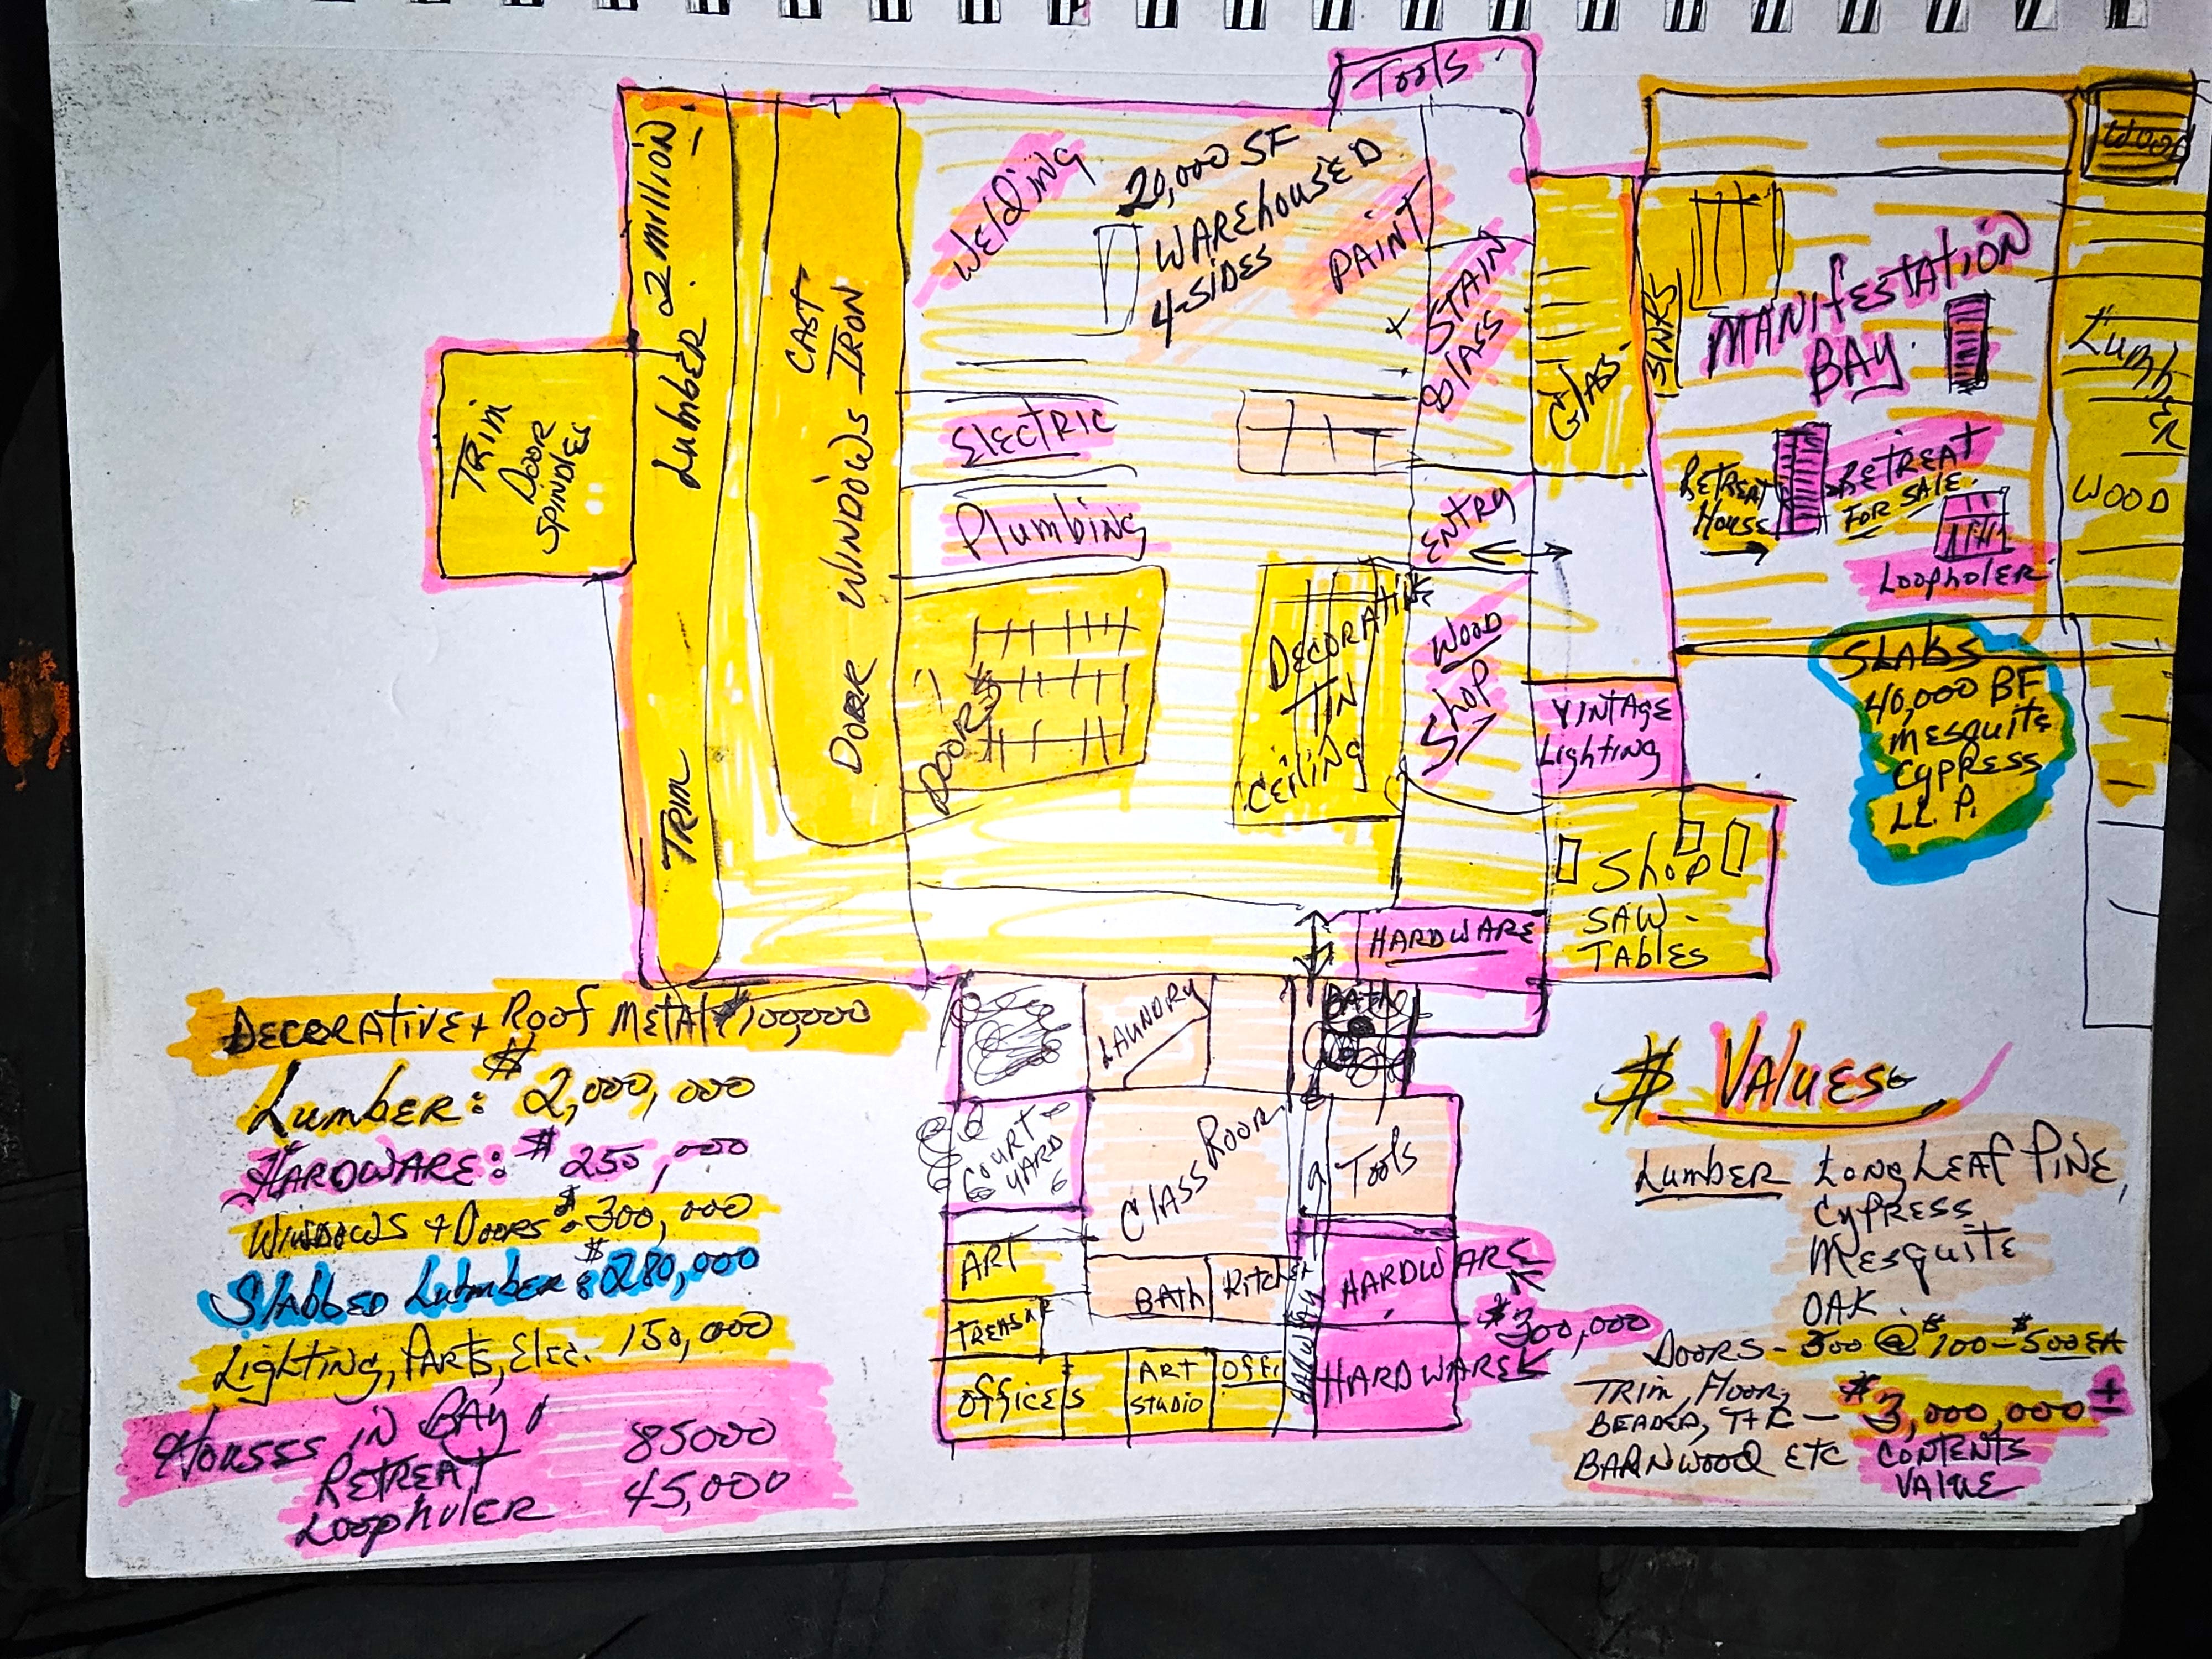 Tools
WOOD
Welding
20,000 SF
WAREHOUSED
4-SIDES
PAINT
+ STAIN
GLASS
GLASS
SINKS
MANIFESTATION
BAY.
RETREAT
HOUSE
RETREAT
FOR SALE.
LOOPHOLER
LumbER
WOOD
Lumber 2 million
TRIM
CAST IRON
DOOR WINDOWS
TRIM
DOOR
SPINDLES
ELECTRIC
Plumbing
ENTRY
DOORS
DECORATIVE
TIN
CEILING
WOOD
SHOP
VINTAGE
Lighting
SLABS
40,000 BF
MESQUITE
CYPRESS
LL. P.
Shop
SAW-
TABLES
HARDWARE
LAUNDRY
BATH
COURT-
YARD
CLASS ROOM
Tools
ART
BATH
KITCHEN
HARDWARE
TREASUR
HALLWAY
HARDWARE
$300,000
OFFICES
ART
STUDIO
OFFI
DECORATIVE + Roof METAL $100,000
Lumber: $2,000,000
HARDWARE: $250,000
WINDOWS + DOORS $300,000
SLABBED Lumber: $280,000
Lighting, PARTS, Elec. 150,000
HOUSES IN BAY
RETREAT 85000
LOOPHOLER 45,000
$ VALUES
LUMBER LONG LEAF PINE,
CYPRESS
MESQUITE
OAK.
DOORS - 300 @ $100-$500 EA
TRIM, FLOOR,
BEADED, T+C - $3,000,000 ±
BARNWOOD ETC CONTENTS
VALUE